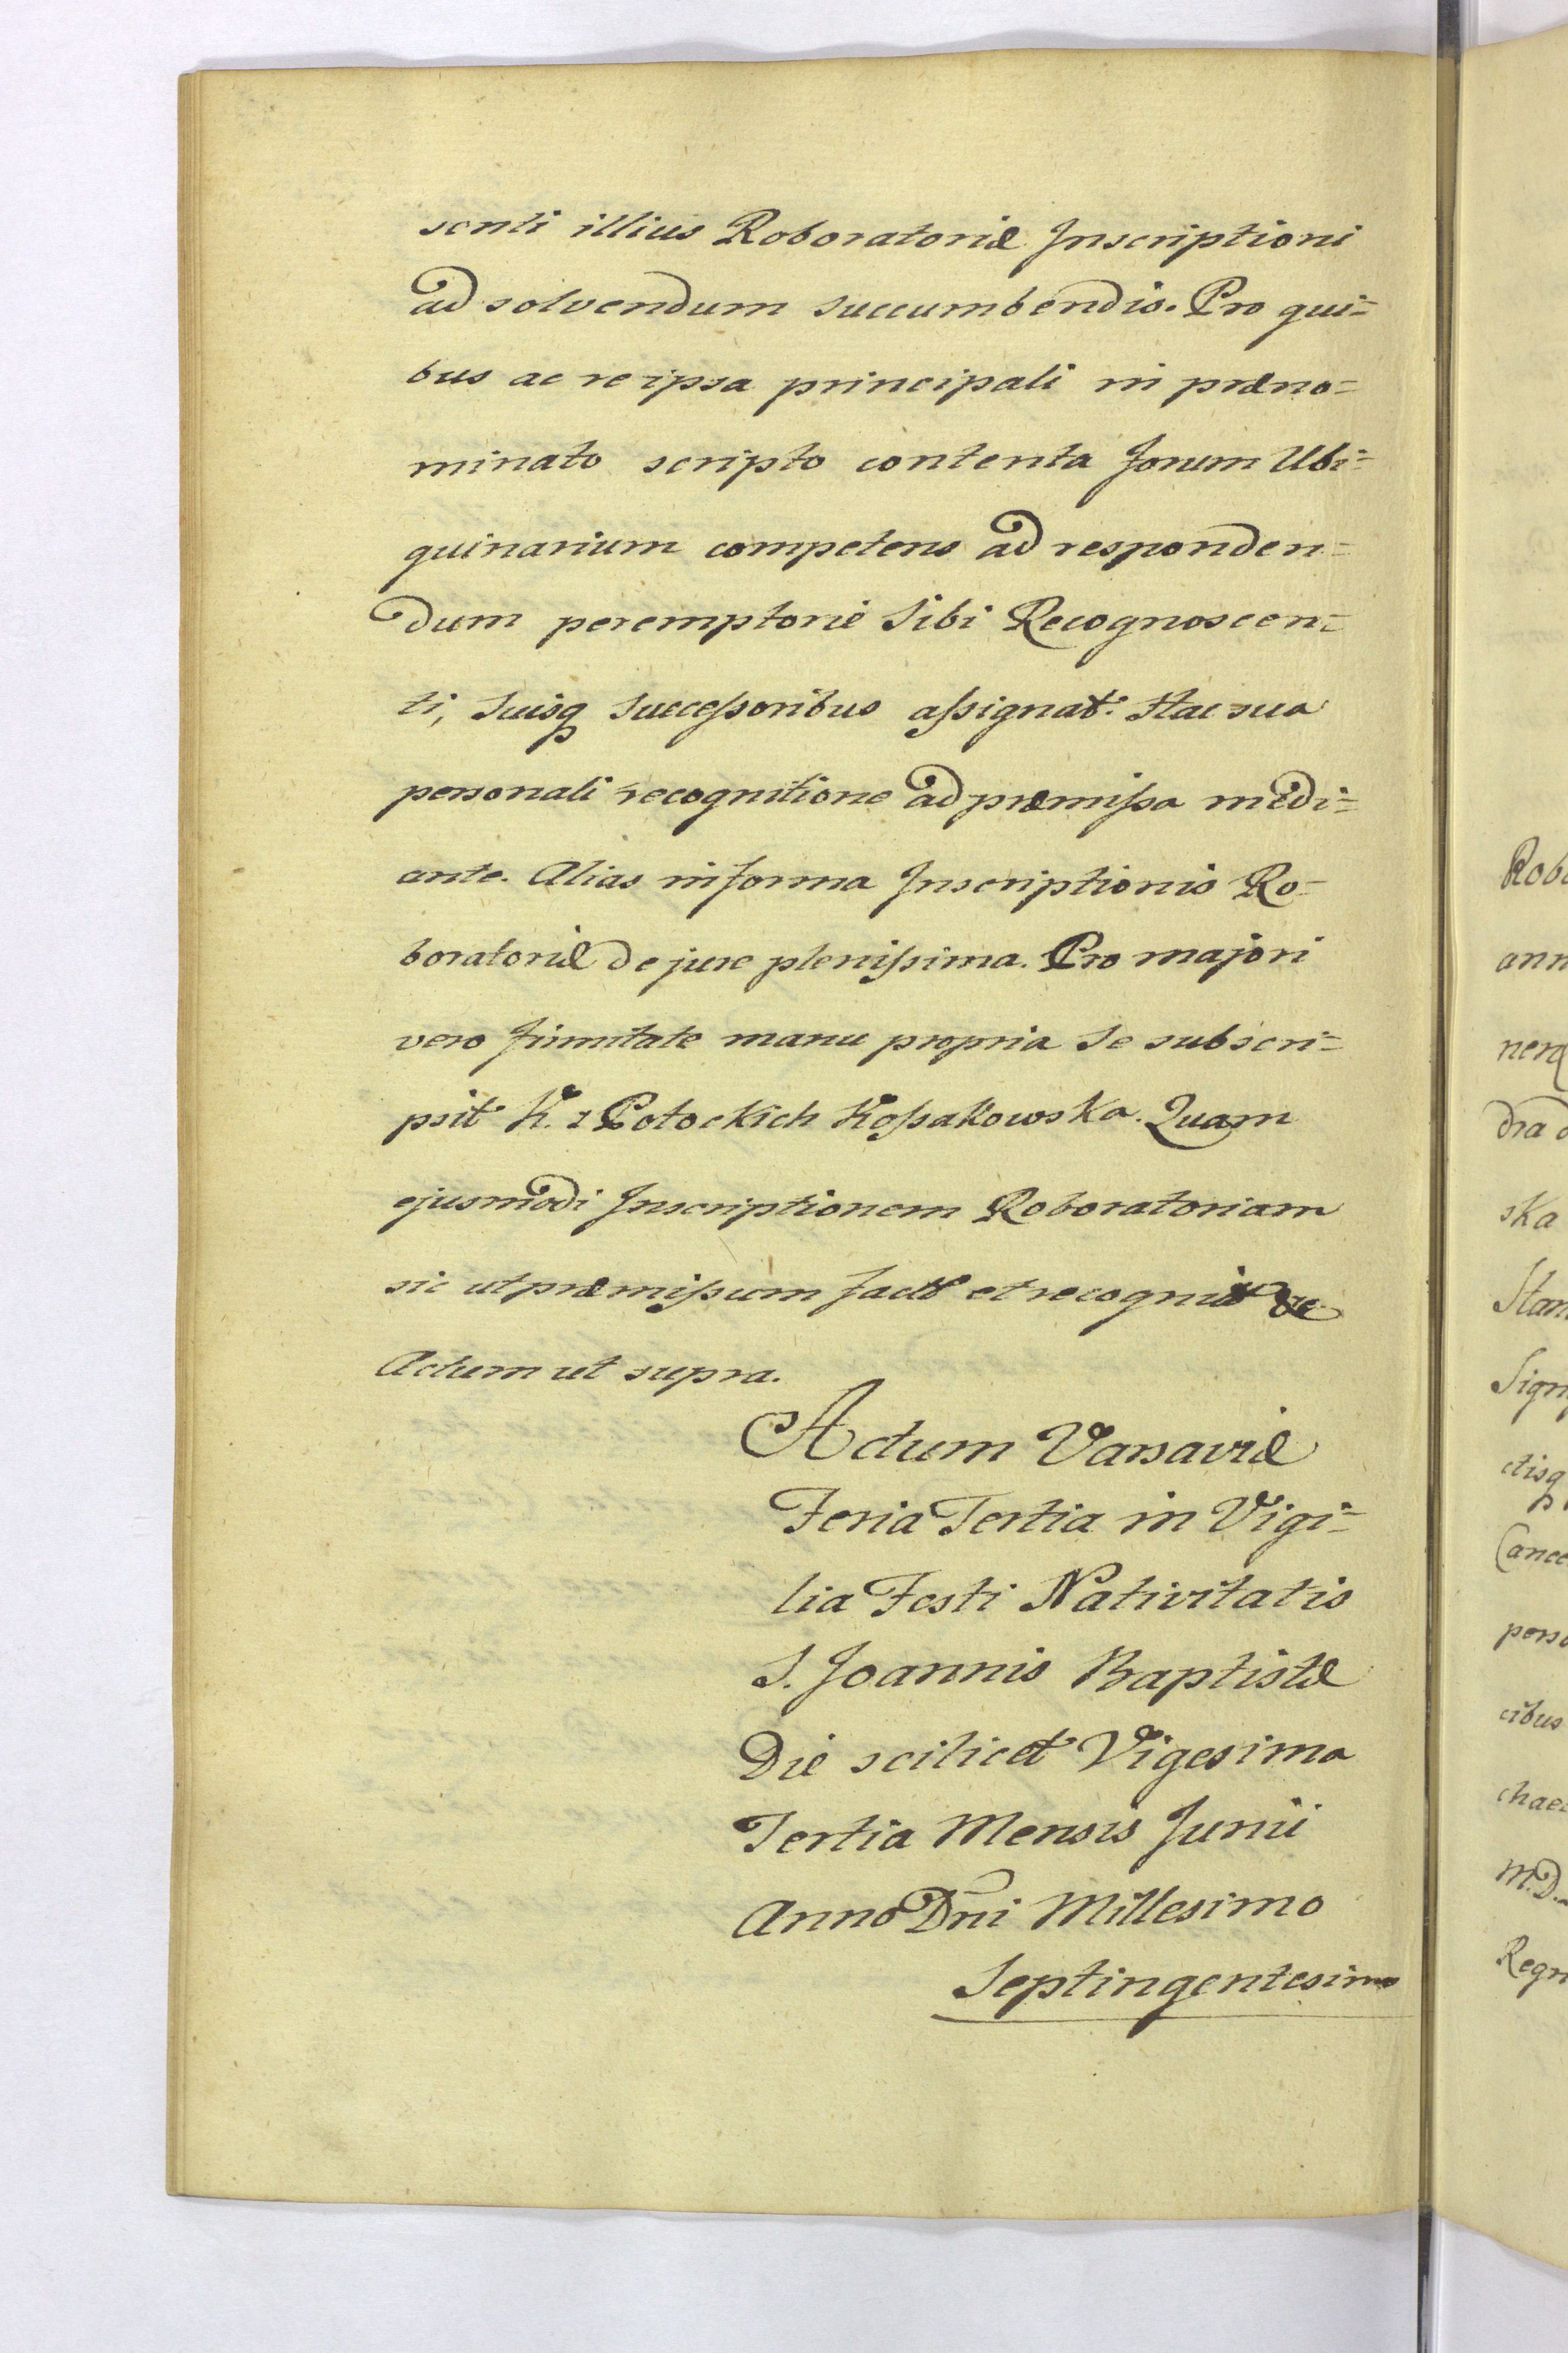 senti illius Roboratoriæ Inscriptioni
ad solvendum succumbendis. Pro qui=
bus ac re ipsa principali in præno=
minato scripto contenta forum Ubi=
quinarium competens ad responden=
dum peremptorie Sibi Recognoscen=
ti, Suisq Successoribus assignat. Hac sua
personali recognitione ad præmissa medi=
ante. Alias in forma Inscriptionis Ro=
boratoriæ de jure plenissima. Pro majori
vero firmitate manu propria Se subscri=
psit K. z Potockich Kossakowska. Quam
ejusmodi Inscriptionem Roboratoriam
sic ut præmissum facit et recognit &c
Actum ut supra.
Actum Varsaviæ
Feria Tertia in Vigi=
lia Festi Nativitatis
S. Joannis Baptistæ
Die scilicet Vigesima
Tertia Mensis Junii
Anno Dni Millesimo
Septingentesimo
Robo
ann
nerq
dra d
ska
Stan
Sign
ctisq
Cance
perso
cibus
chae
M.D.
Regn